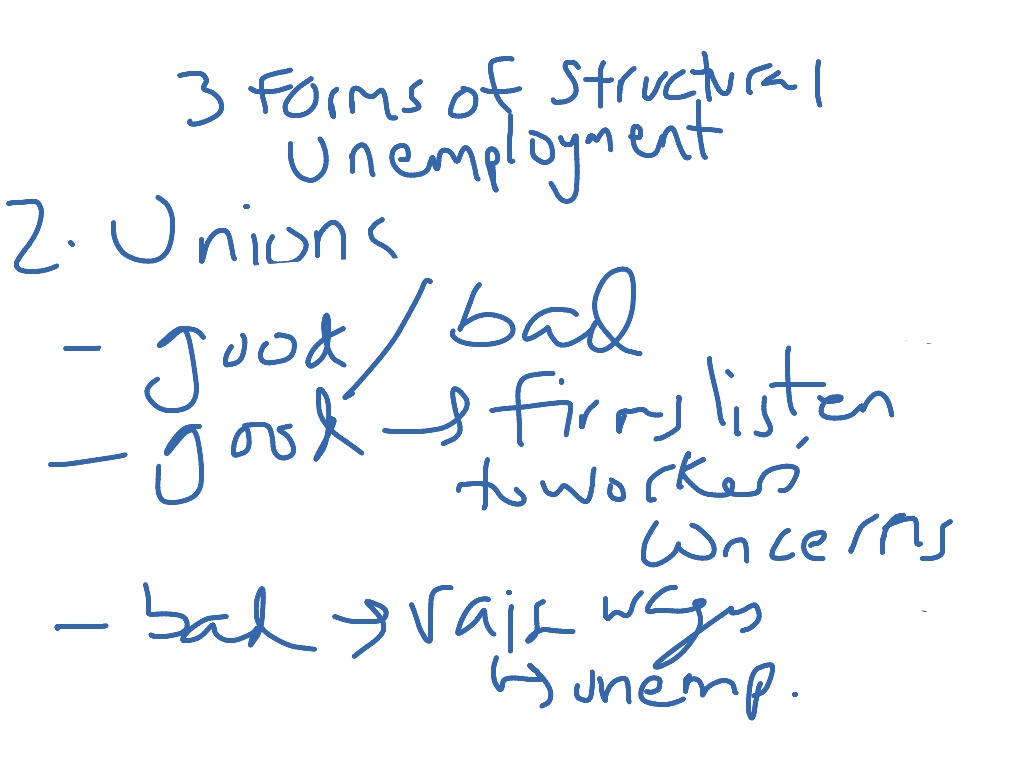 3 Forms of Structural
Unemployment
2. Unions
- good/bad
- good → firms listen
to workers'
concerns
- bad → raise wages
↳ unemp.